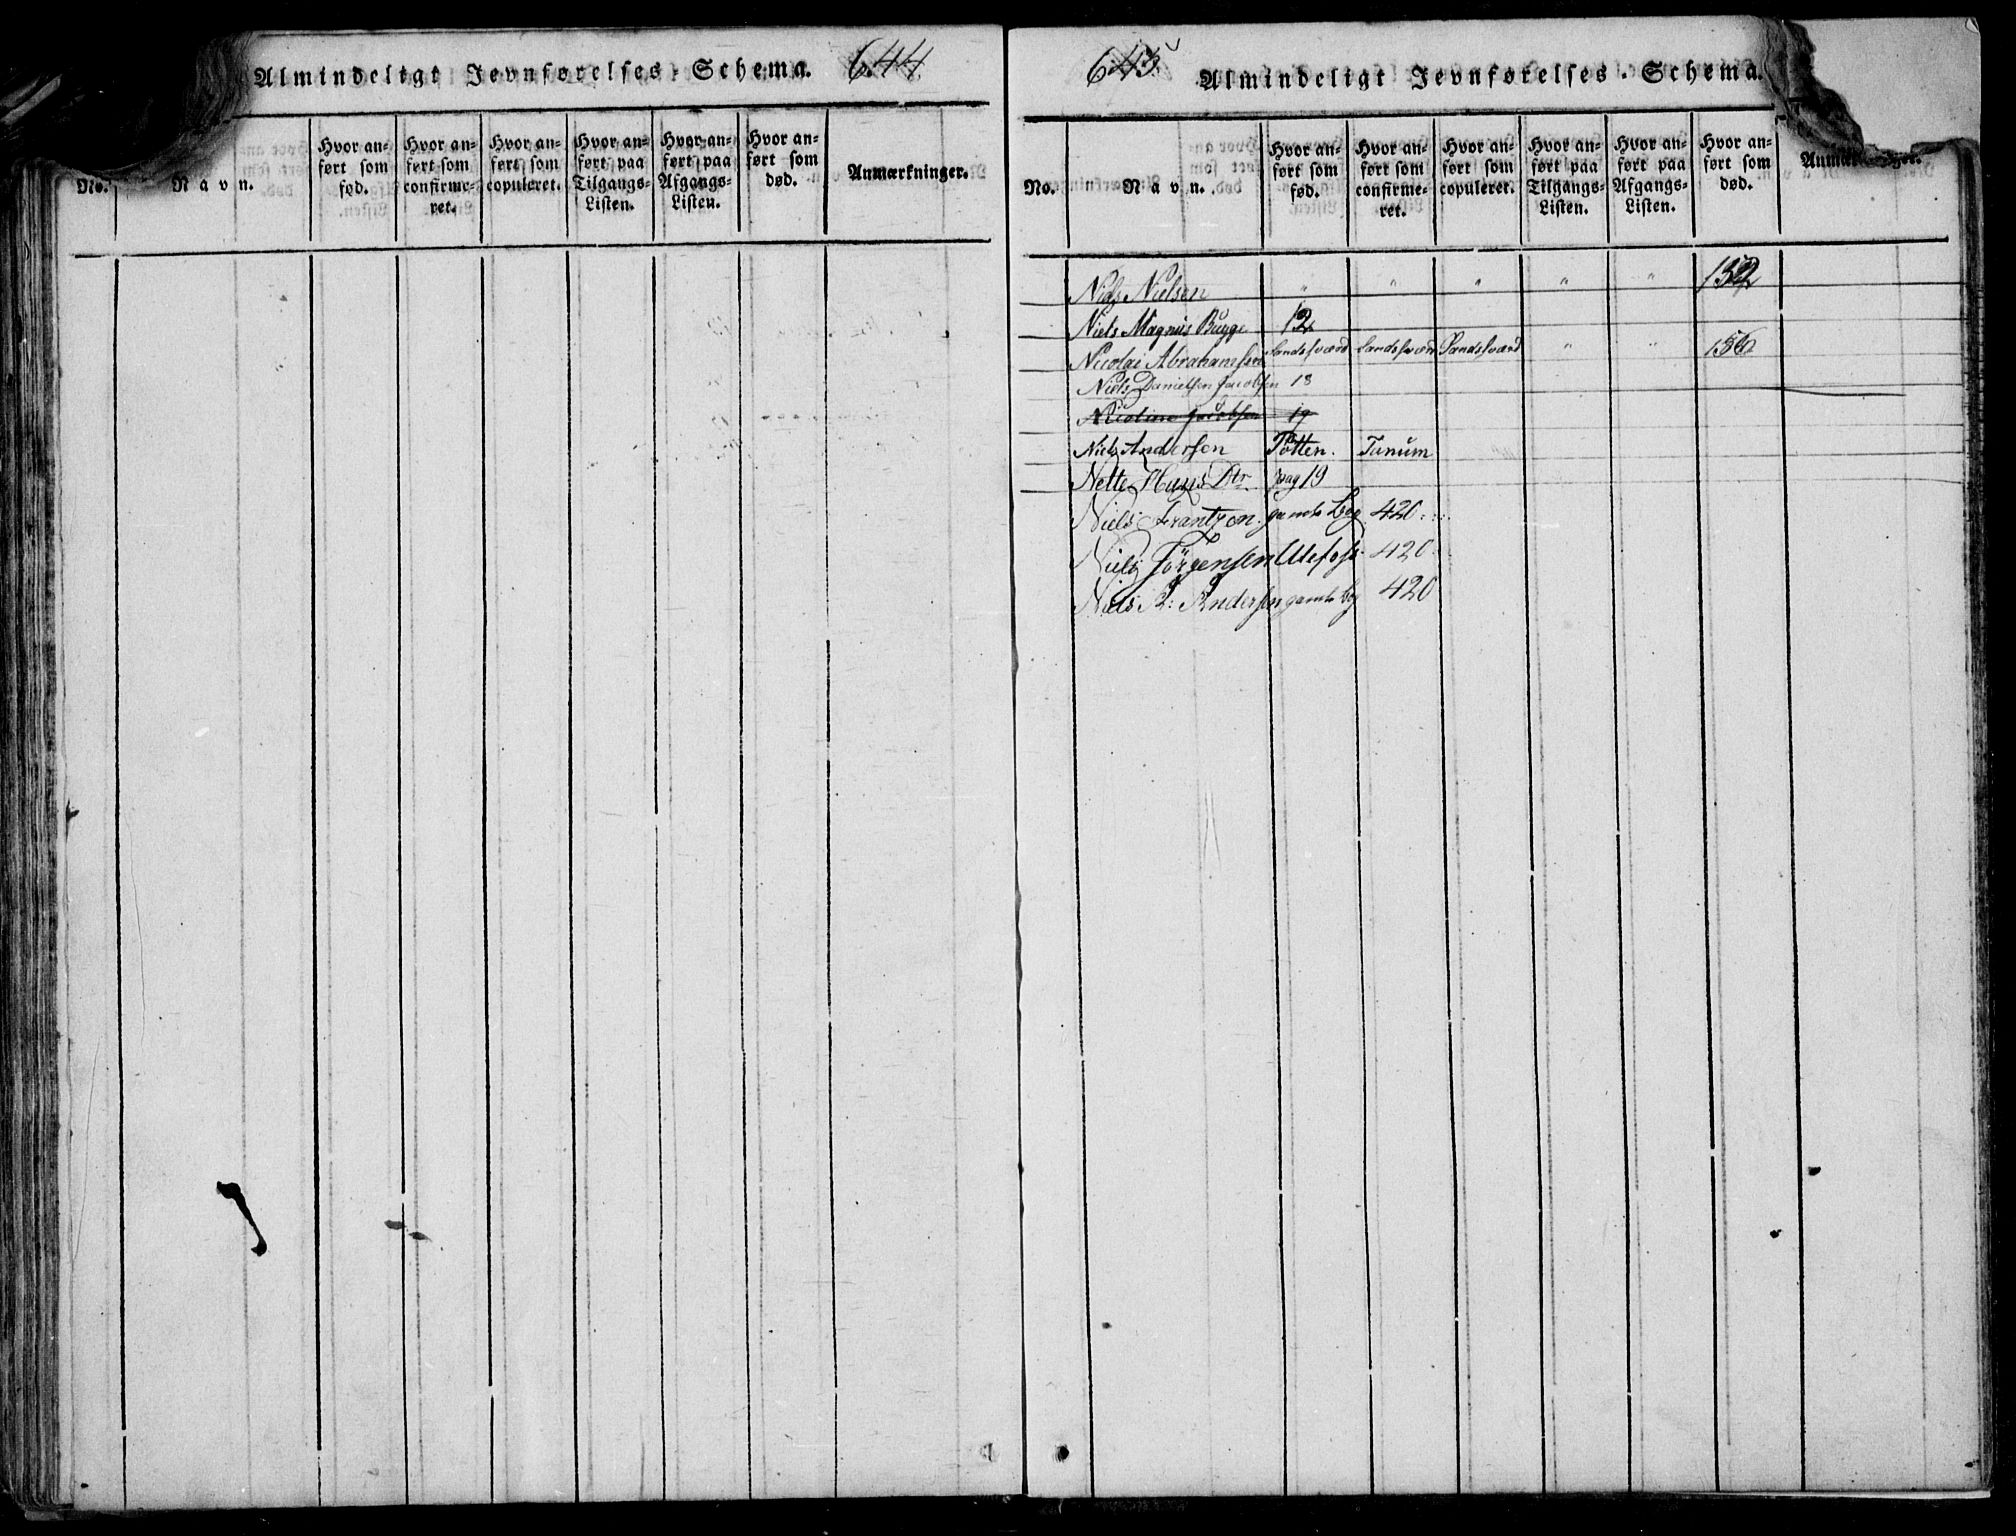 Almindeligt Jevnførelses-Schema. 644.
No.
Navn.
Hvor anført som fød.
Hvor anført som confirmeret.
Hvor anført som copuleret.
Hvor anført paa Tilgangs-Listen.
Hvor anført paa Afgangs-Listen.
Hvor anført som død.
Anmærkninger.
645. Almindeligt Jevnførelses-Schema.
No.
Navn.
Hvor anført som fød.
Hvor anført som confirmeret.
Hvor anført som copuleret.
Hvor anført paa Tilgangs-Listen.
Hvor anført paa Afgangs-Listen.
Hvor anført som død.
Niels Nielsen " " " " " 152
Niels Magnus Bugge 12
Nicolai Abrahamsen Sandsværd Sandsværd Sandsværd " " 156
Niels Danielsen Jacobsen 18
Nicoline Jacobsen 19
Niels Andersen Totten. Tanum
Nette Hans Dtr. pag 19
Niels Frantzen. gamle Bog 420
Niels Jörgensen Ulefoss. 420
Niels R: Andersen gamle Bog 420